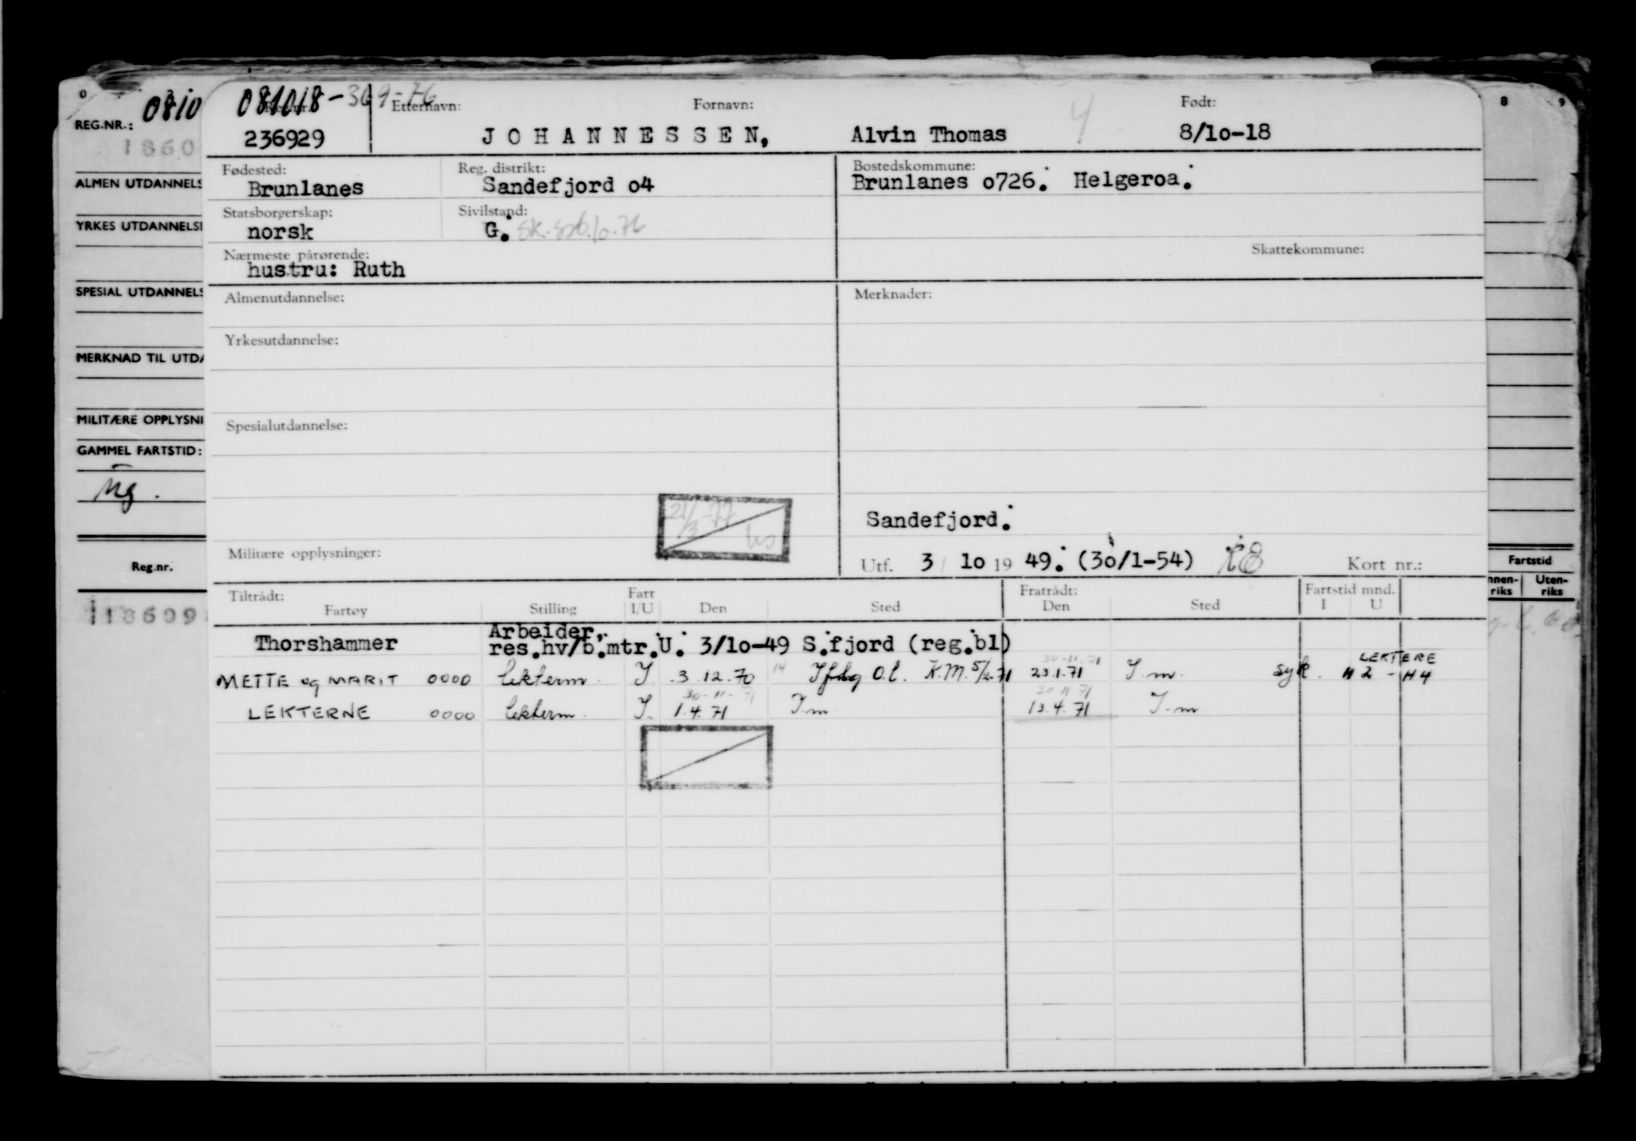 0 8 9
REG.NR.: 0810
1860
ALMEN UTDANNELS
YRKES UTDANNELS
SPESIAL UTDANNELS
MERKNAD TIL UTDA
MILITÆRE OPPLYSNI
GAMMEL FARTSTID:
Ug.
Reg.nr.
118609
Fartstid
nnen-riks Uten-riks
081018-369-76 Etternavn: Fornavn: Født:
236929 JOHANNESSEN, Alvin Thomas 4 8/10-18
Fødested: Reg. distrikt: Bostedskommune:
Brunlanes Sandefjord o4 Brunlanes o726. Helgeroa.
Statsborgerskap: Sivilstand:
norsk G.
Nærmeste pårørende: Skattekommune:
hustru: Ruth
Almenutdannelse: Merknader:
Yrkesutdannelse:
Spesialutdannelse:
21/3-77
Sandefjord.
Militære opplysninger: Utf. 3 10 19 49. (30/1-54) Kort nr.:
Tiltrådt: Fart Fratrådt: Fartstid mnd.
Fartøy Stilling I/U Den Sted Den Sted I U
Arbeider,
Thorshammer res.hv/b.mtr. U. 3/10-49 S.fjord (reg.bl)
30-11-71 LEKTERE
METTE og MARIT 0000 lekterm. I 3.12.70 14 O.l. K.M. 5/2-71 23.1.71 I.m. syk. H2 - H4
30-11-71 30 11 71
LEKTERNE 0000 lekterm. I. 1.4.71 I.m 13.4.71 I.m